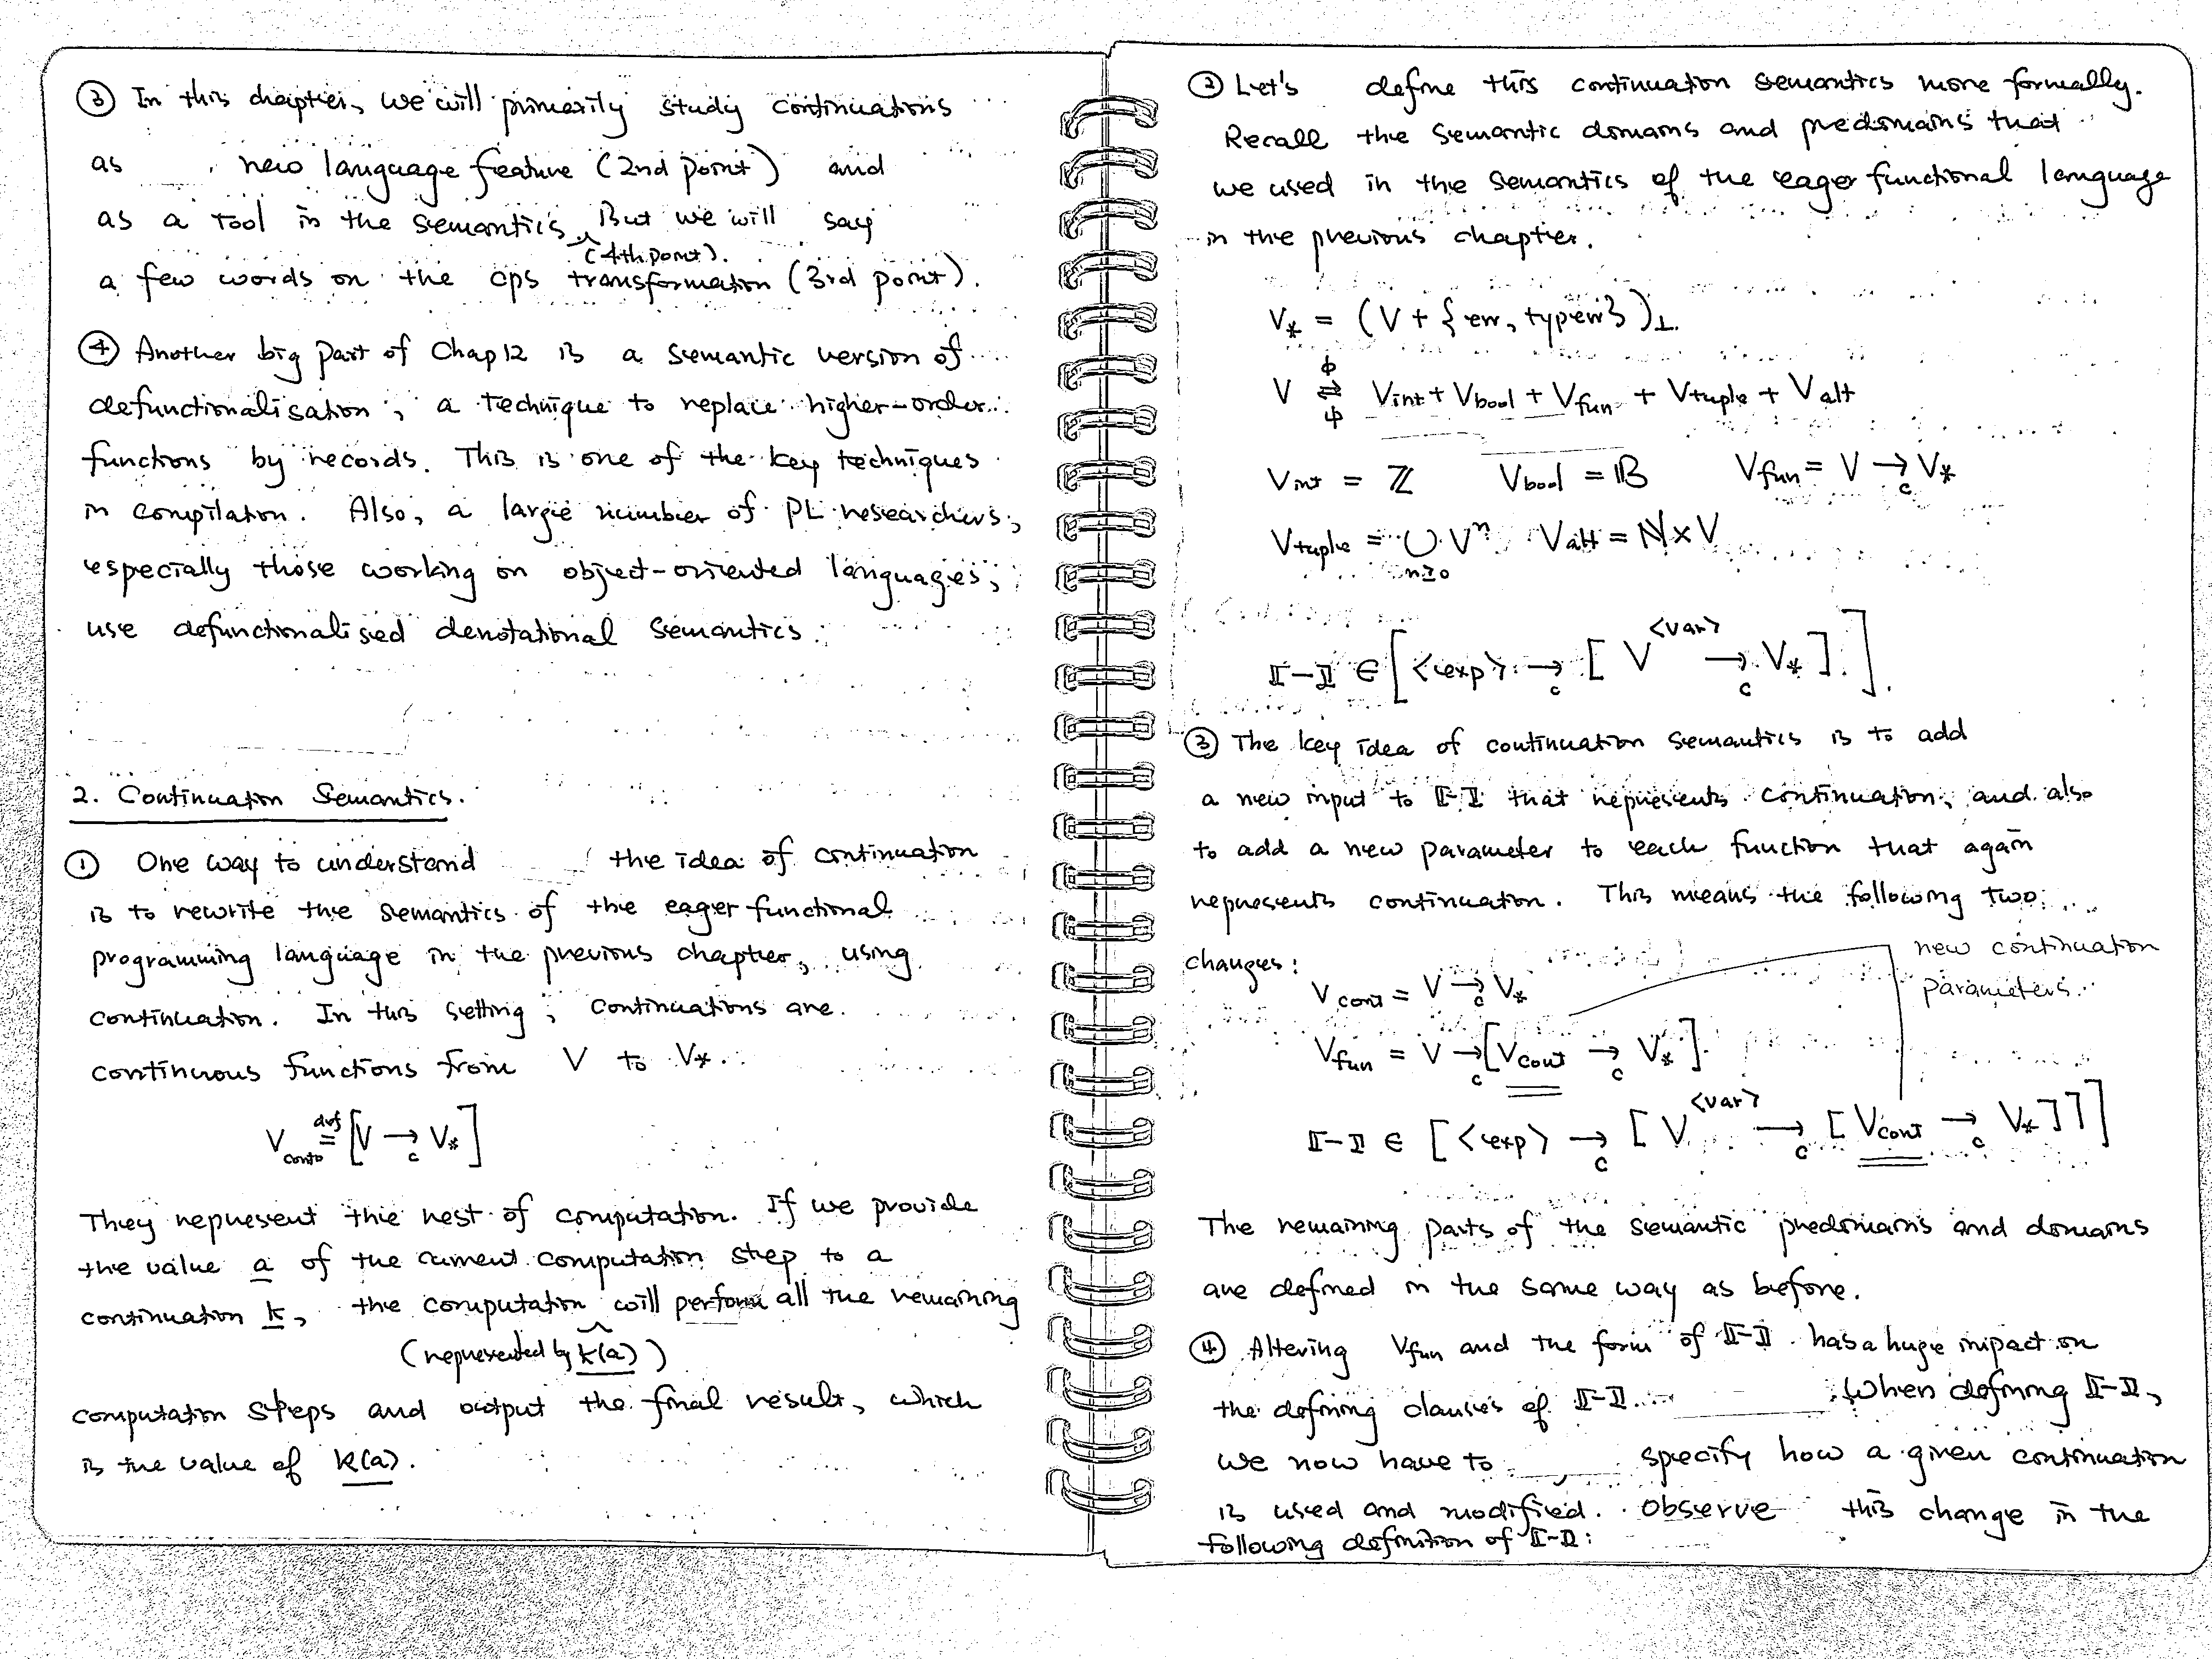 ③ In this chapter, we will primarily study continuations
as new language feature (2nd point) and
as a tool in the semantics (4th point). But we will say
a few words on the cps transformation (3rd point).
④ Another big part of Chap 12 is a semantic version of
defunctionalisation, a technique to replace higher-order
functions by records. This is one of the key techniques
in compilation. Also, a large number of PL researchers,
especially those working on object-oriented languages,
use defunctionalised denotational semantics.
2. Continuation Semantics.
① One way to understand the idea of continuation
is to rewrite the semantics of the eager functional
programming language in the previous chapter, using
continuation. In this setting, continuations are
continuous functions from V to V*.
V_cont def= [V →_c V*]
They represent the rest of computation. If we provide
the value a of the current computation step to a
continuation k, the computation will perform all the remaining
(represented by k(a))
computation steps and output the final result, which
is the value of k(a).
② Let's define this continuation semantics more formally.
Recall the semantic domains and predomains that
we used in the semantics of the eager functional language
in the previous chapter.
V* = (V + {err, typerr})⊥.
V ⇄ (ϕ, ψ) V_int + V_bool + V_fun + V_tuple + V_alt
V_int = ℤ V_bool = 𝔹 V_fun = V →_c V*
V_tuple = ∪_{n≥0} V^n V_alt = ℕ × V
⟦-⟧ ∈ [<exp> →_c [V^<var> →_c V*]].
③ The key idea of continuation semantics is to add
a new input to ⟦-⟧ that represents continuation, and also
to add a new parameter to each function that again
represents continuation. This means the following two
changes:
new continuation
parameters.
V_cont = V →_c V*
V_fun = V →_c [V_cont →_c V*].
⟦-⟧ ∈ [<exp> →_c [V^<var> →_c [V_cont →_c V*]]]
The remaining parts of the semantic predomains and domains
are defined in the same way as before.
④ Altering V_fun and the form of ⟦-⟧ has a huge impact on
the defining clauses of ⟦-⟧. When defining ⟦-⟧,
we now have to specify how a given continuation
is used and modified. Observe this change in the
following definition of ⟦-⟧: